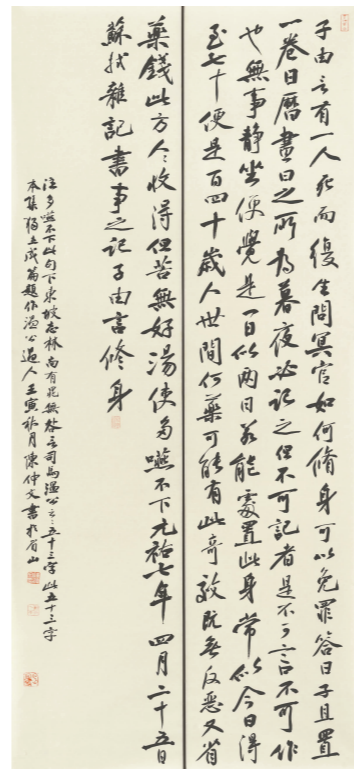 子由言有一人死而復生問冥官如何脩身可以免罪答曰子且置
一卷日曆晝日之所為暮夜必記之但不可記者是不可言不可作
也無事靜坐便覺是一日似兩日若能處置此身常似今日得
至七十便是百四十歲人世間何藥可能有此奇效既無反惡又省
藥錢此方人人收得但苦無好湯使多嚥不下元祐七年四月二十五日
蘇軾雜記書事之記子由言修身
注多嚥不下此句下東坡志林尚有晁無咎言司馬溫公云云五十三字此五十三字
本集獨立成篇題作溫公過人壬寅秋月陳仲文書於眉山